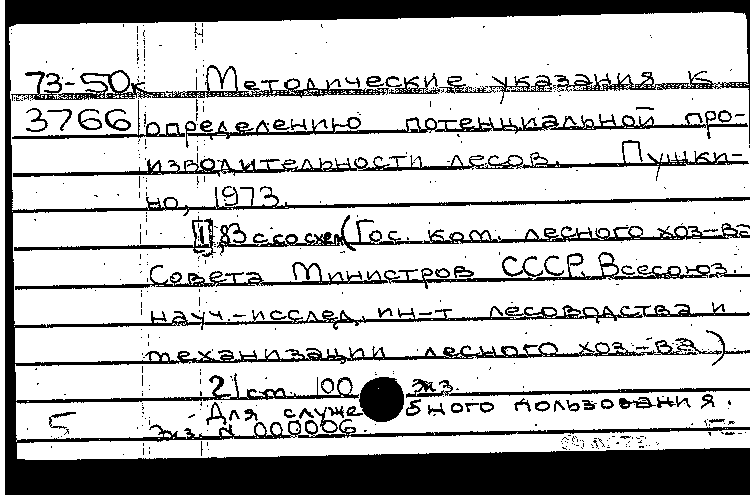 73-50к Методические указания к
3766 определению потенциальной про-
изводительности лесов. Пушки-
но, 1973.
[1], 83 с со схем (Гос. ком. лесного хоз-ва
Совета Министров СССР. Всесоюз.
науч.-исслед. ин-т лесоводства и
механизации лесного хоз-ва)
21 см. 100 экз.
Для служебного пользования.
5 Экз. N 000006.